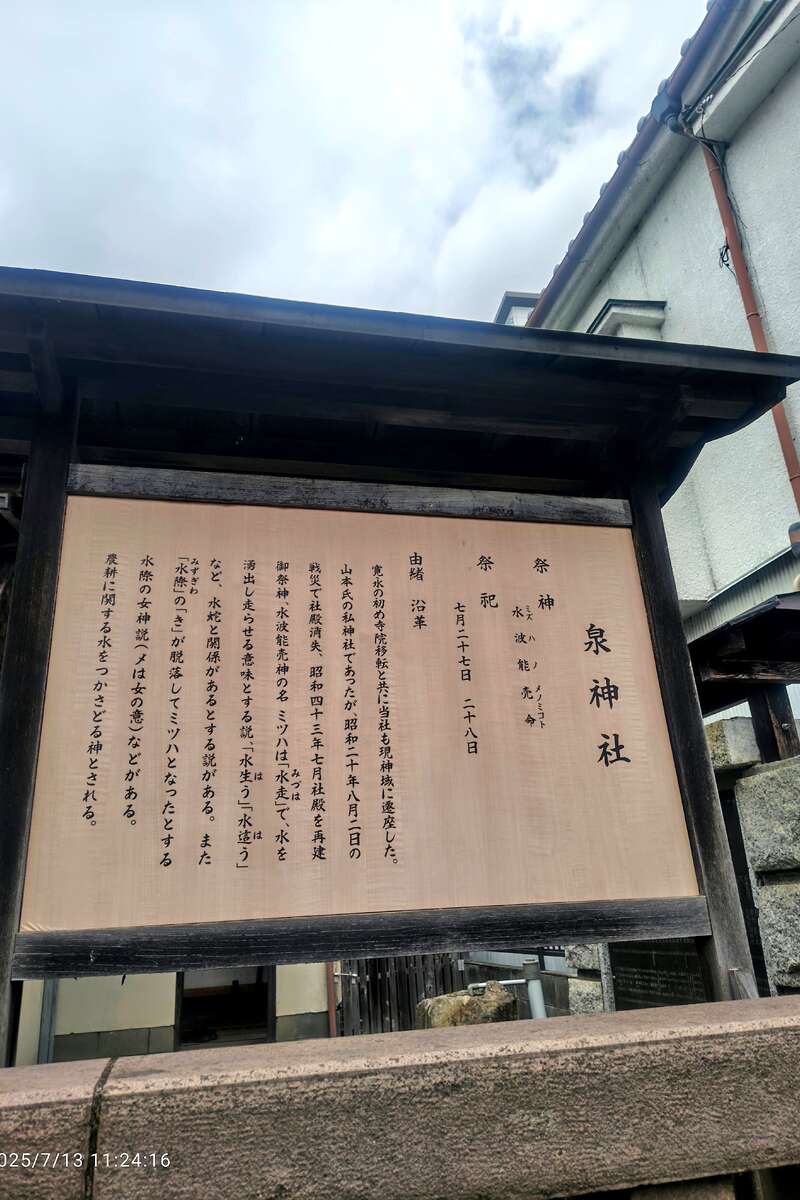 泉神社
祭神
水波能売命
ミズハノメノミコト
祭祀
七月二十七日 二十八日
由緒 沿革
寛永の初め寺院移転と共に当社も現神域に遷座した。
山本氏の私神社であったが、昭和二十年八月二日の
戦災で社殿消失、昭和四十三年七月社殿を再建
御祭神、水波能売神の名 ミツハは「水走」で、水を
みづは
湧出し走らせる意味とする説「水生う」「水這う」
は
は
など、水蛇と関係があるとする説がある。また
「水際」の「き」が脱落してミツハとなったとする
みずぎわ
水際の女神説(メは女の意)などがある。
農耕に関する水をつかさどる神とされる。
025/7/13 11:24:16